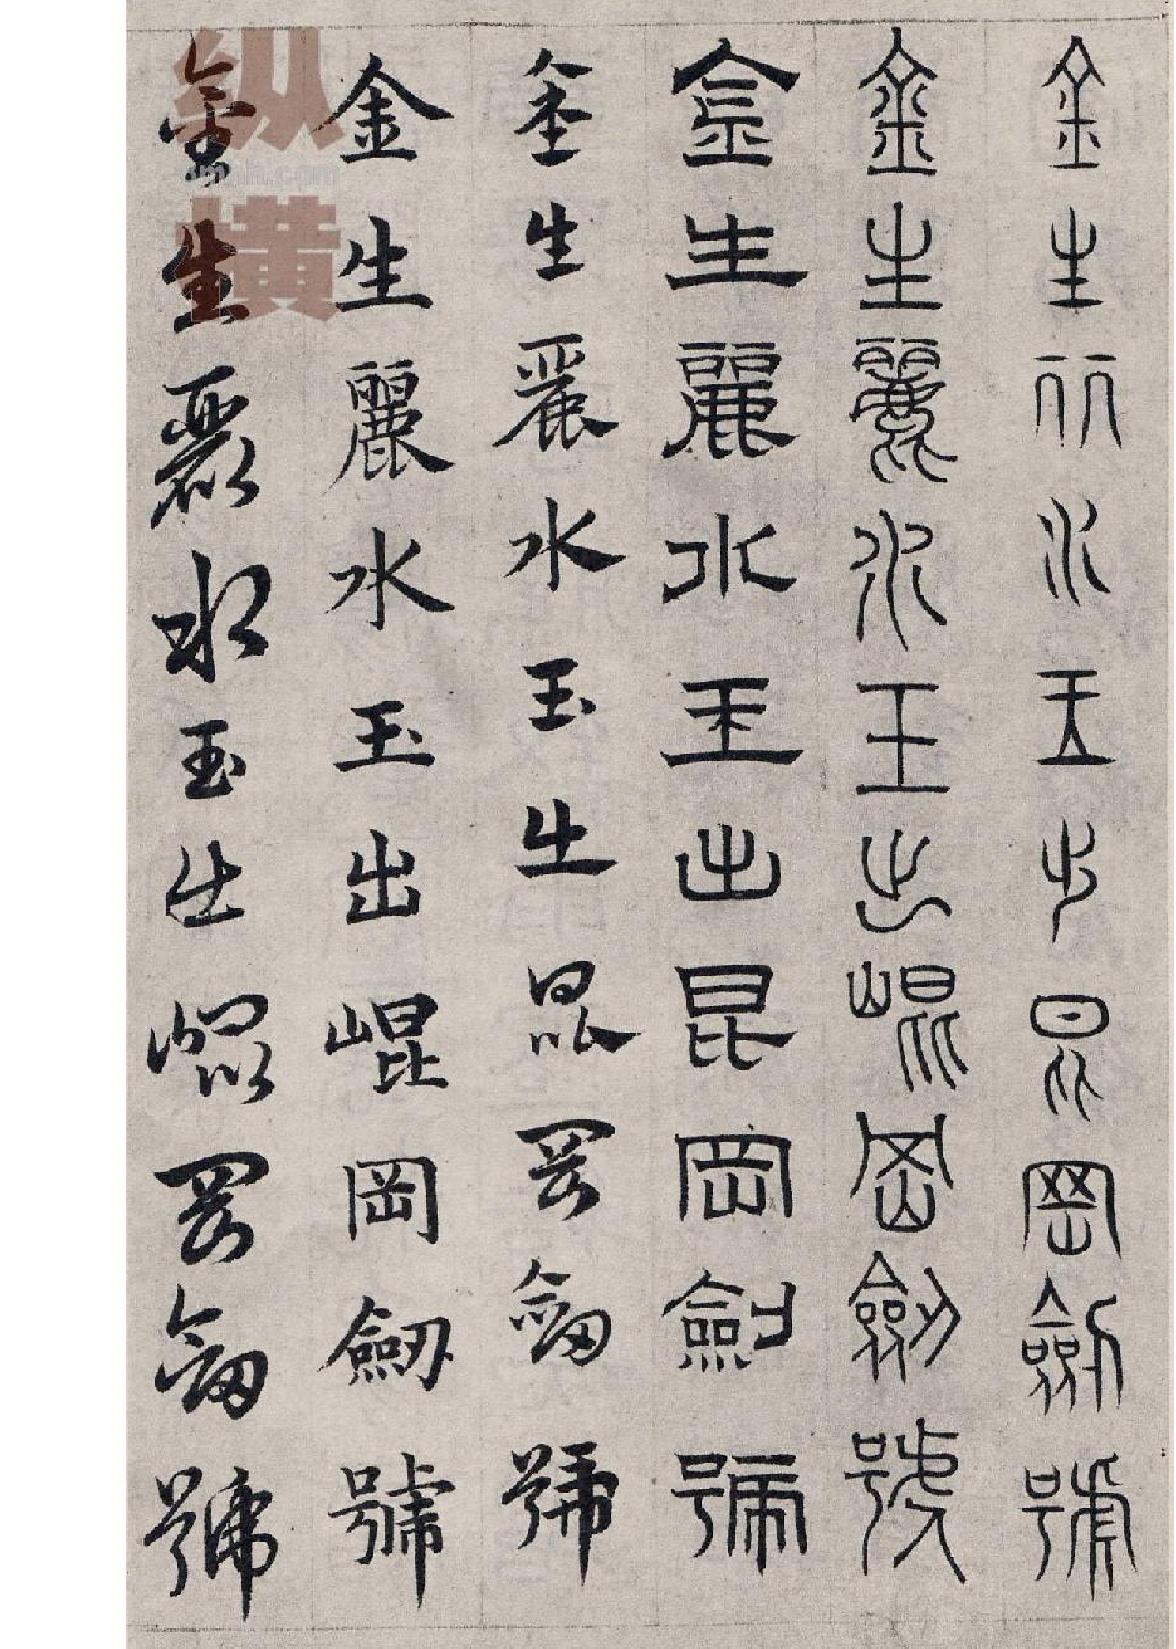 金生丽水玉出昆冈劒號
金生麗水玉出崐岡劒號
金生麗水玉出昆岡劍號
金生麗水玉出昆岡劒號
金生麗水玉出崐岡劒號
金生麗水玉出崐岡劒號
纵横